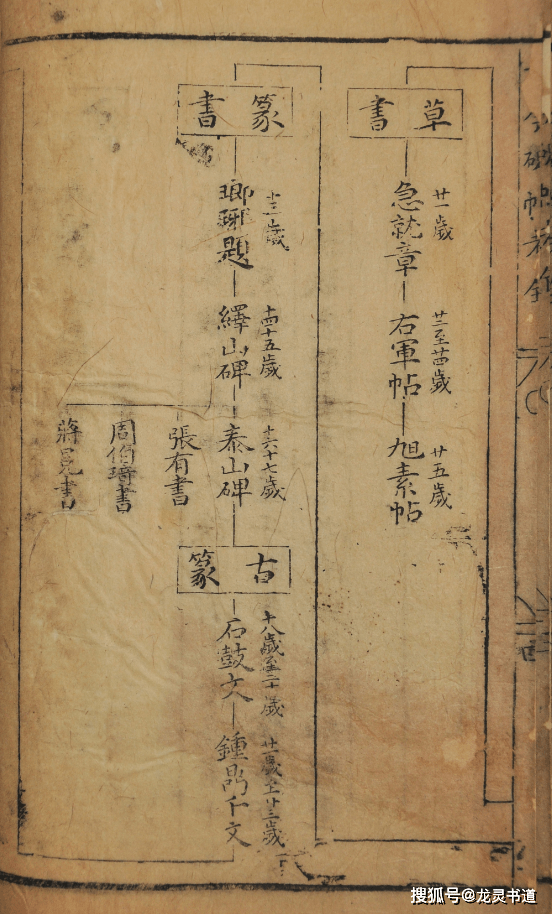 草書
廿一歲
急就章
廿二至廿四歲
右軍帖
廿五歲
旭素帖
篆書
十三歲
瑯琊題
十四十五歲
繹山碑
十六十七歲
泰山碑
張有書
周伯琦書
蔣冕書
古篆
十八歲至二十歲
石鼓文
廿一歲至廿三歲
鍾鼎千文
搜狐号@龙灵书道